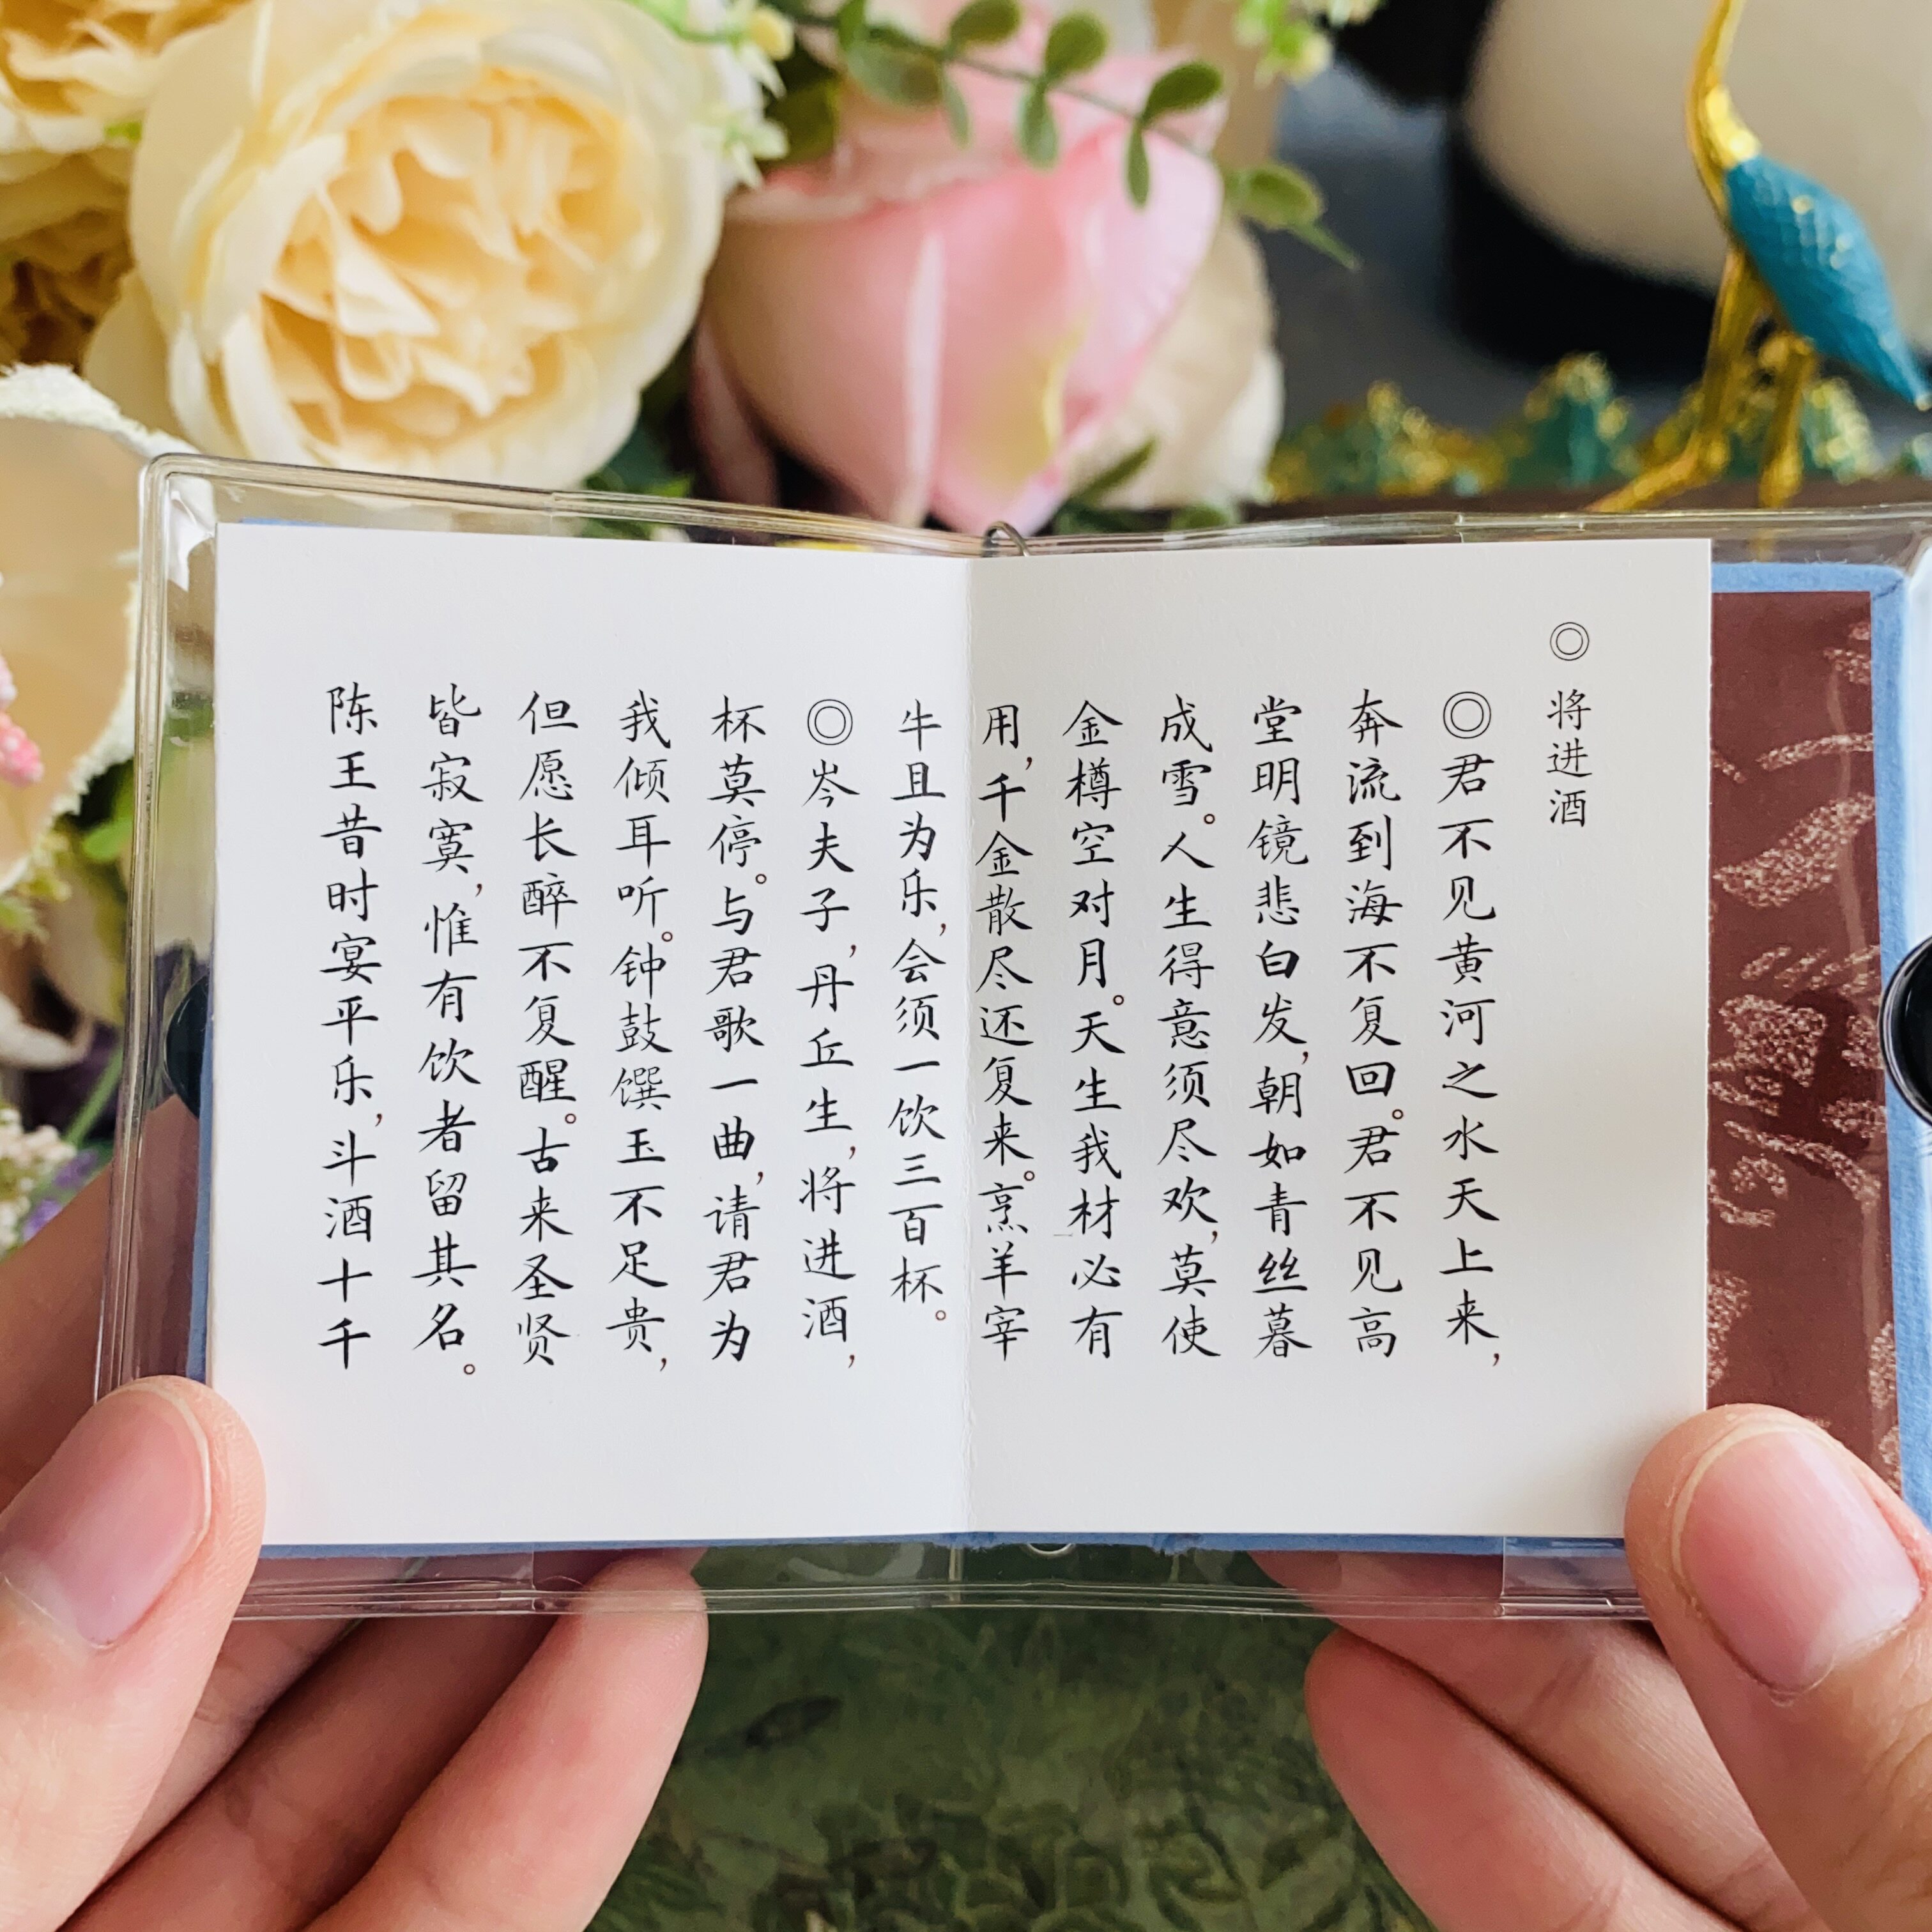 ◎将进酒
◎君不见黄河之水天上来，
奔流到海不复回。君不见高
堂明镜悲白发，朝如青丝暮
成雪。人生得意须尽欢，莫使
金樽空对月。天生我材必有
用，千金散尽还复来。烹羊宰
牛且为乐，会须一饮三百杯。
◎岑夫子，丹丘生，将进酒，
杯莫停。与君歌一曲，请君为
我倾耳听。钟鼓馔玉不足贵，
但愿长醉不复醒。古来圣贤
皆寂寞，惟有饮者留其名。
陈王昔时宴平乐，斗酒十千